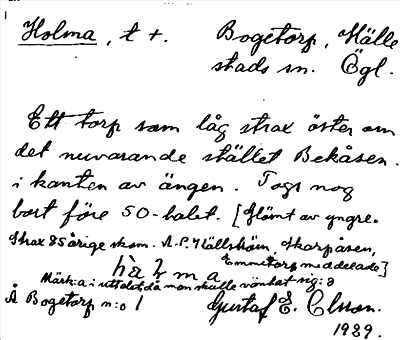 Holma, t +. Bogetorp, Hälle
stads sn. Ögl.
Ett torp som låg strax öster om
det nuvarande stället Bekåsen.
i kanten av ängen. Togs nog
bort före 50-talet. [Glömt av yngre.
Strax 85årige skom. A.P. Hällström, Skarpåsen,
Emmetorp meddelade]
Märk: a i uttalet då man skulle väntat sig: å
Å Bogetorp n:o 1 Gustaf E. Olsson.
1929.